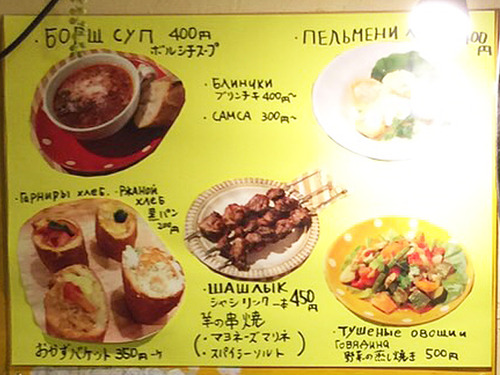 · БОРЩ СУП 400円
ボルシチスープ
· ПЕЛЬМЕНИ
· БЛИНЧКИ
ブリンチキ 400円~
· САМСА 300円~
· ГАРНИРЫ ХЛЕБ.
· РЖАНОЙ
ХЛЕБ
黒パン
200円
おかずバケット 350円~
· ШАШЛЫК
シャシリック 一本 450円
羊の串焼
( · マヨネーズマリネ
· スパイシーソルト )
· ТУШЕНЫЕ ОВОЩИ
ГОВЯДИНА
野菜の蒸し焼き 500円